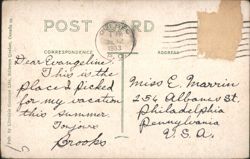 POST CARD
CORRESPONDENCE
ADDRESS
1933
Dear Evangeline,
This is the
place I picked
for my vacation
this summer.
Toujours
Brooks
Miss E. Marvin
254 Albany St.
Philadelphia
Pennsylvania
U.S.A.